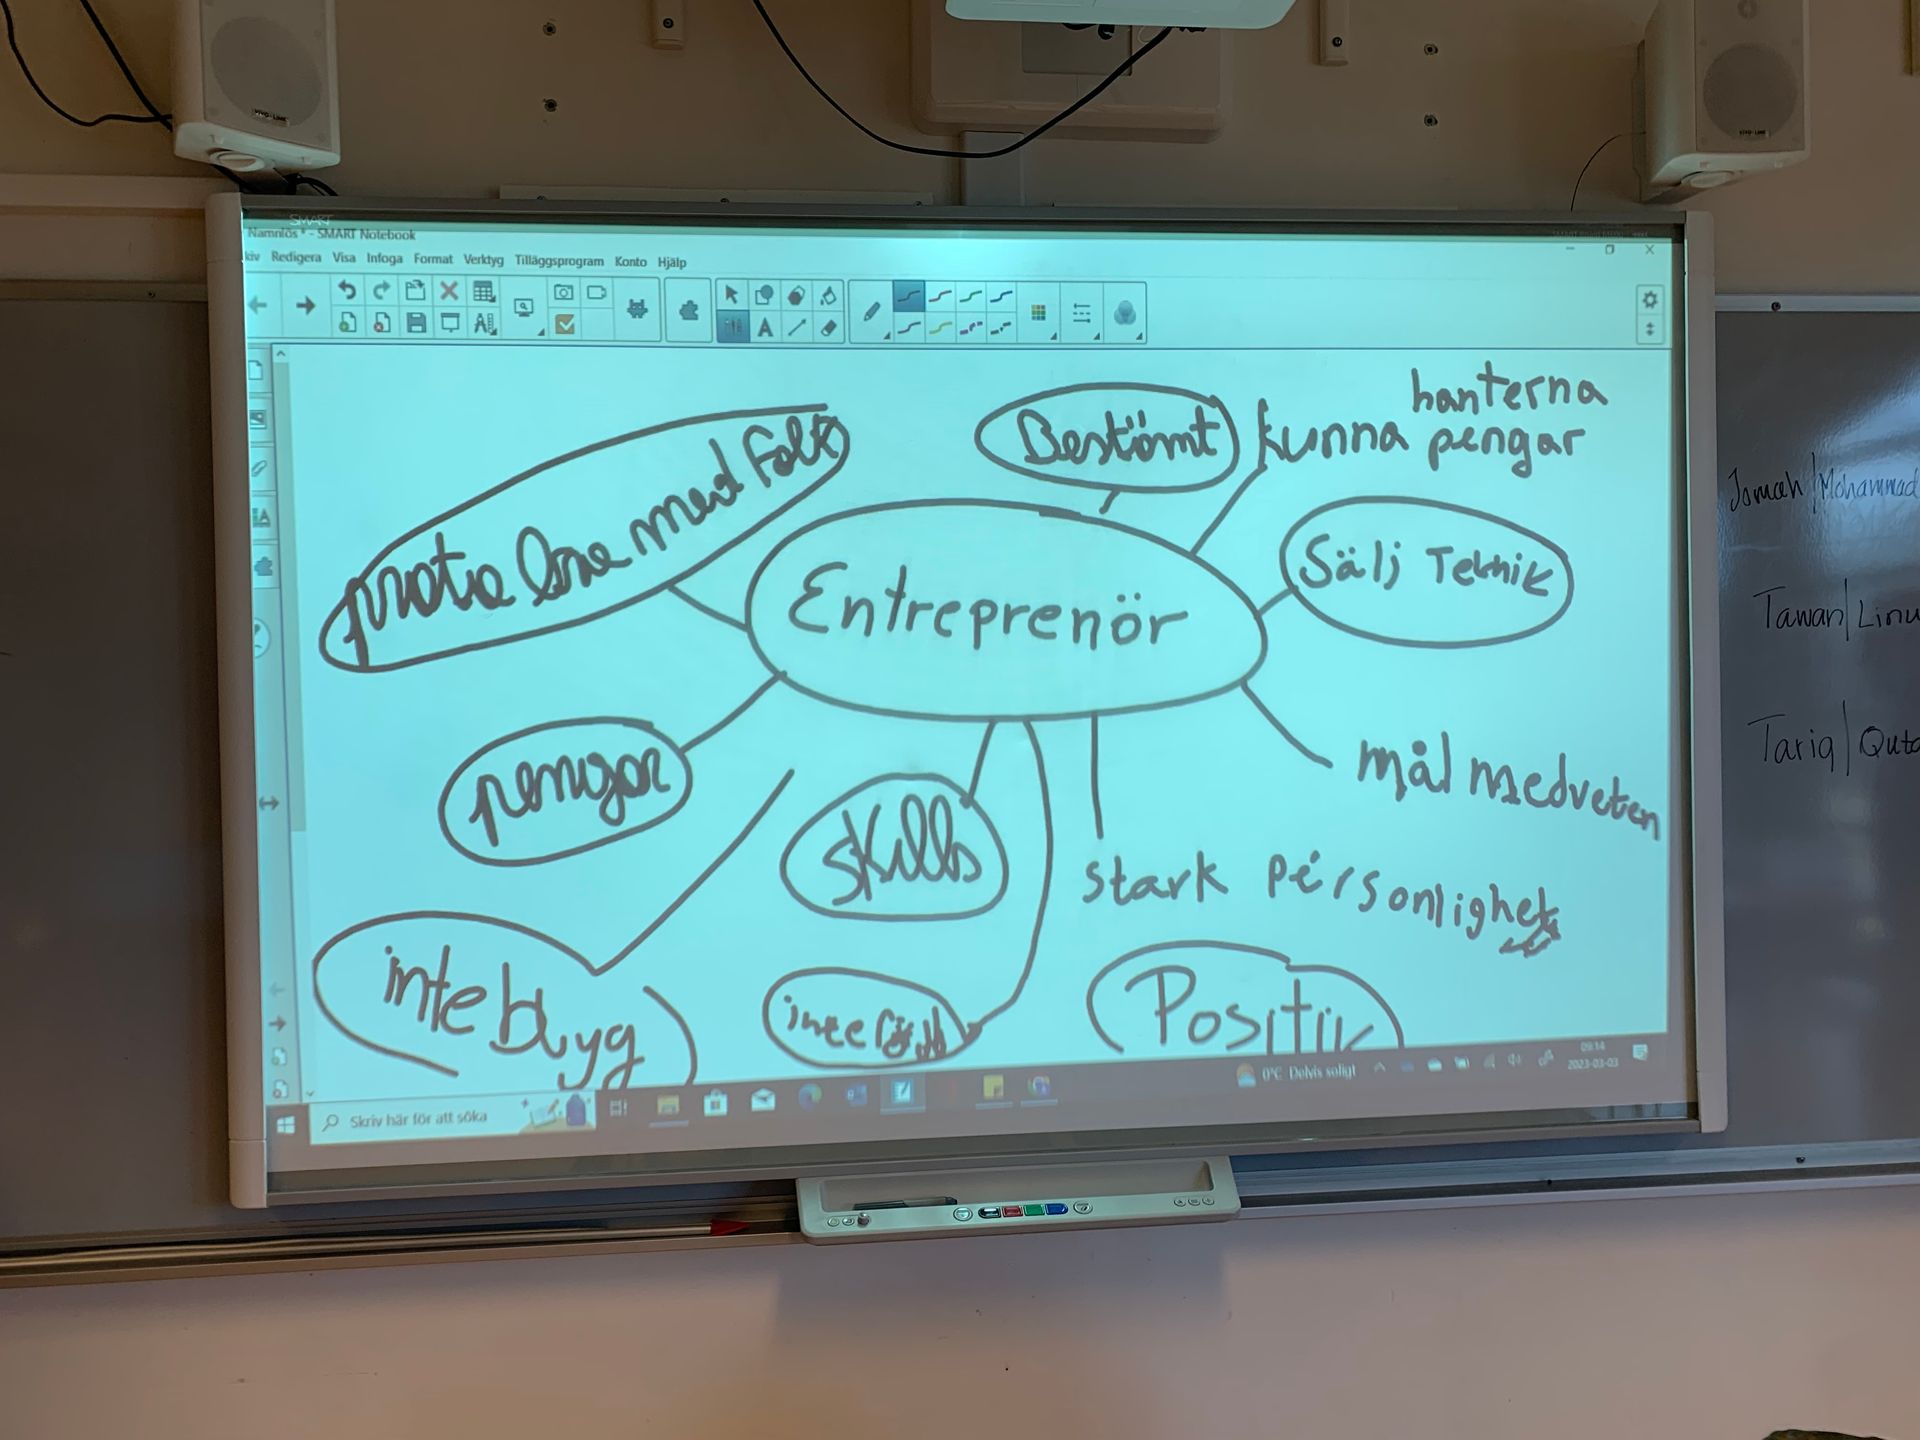 SMART
Namnlös * - SMART Notebook
kiv Redigera Visa Infoga Format Verktyg Tilläggsprogram Konto Hjälp
hanterna
Bestämt kunna pengar
prata bra med Folk
Sälj Teknik
Entreprenör
pengar
mål medveten
skills
stark personlighet
inte blyg
inte
Positiv
Jomah | Mohammad
Tawan | Linu
Tariq | Quta
Skriv här för att söka
0°C Delvis soligt
09:14
2023-03-03